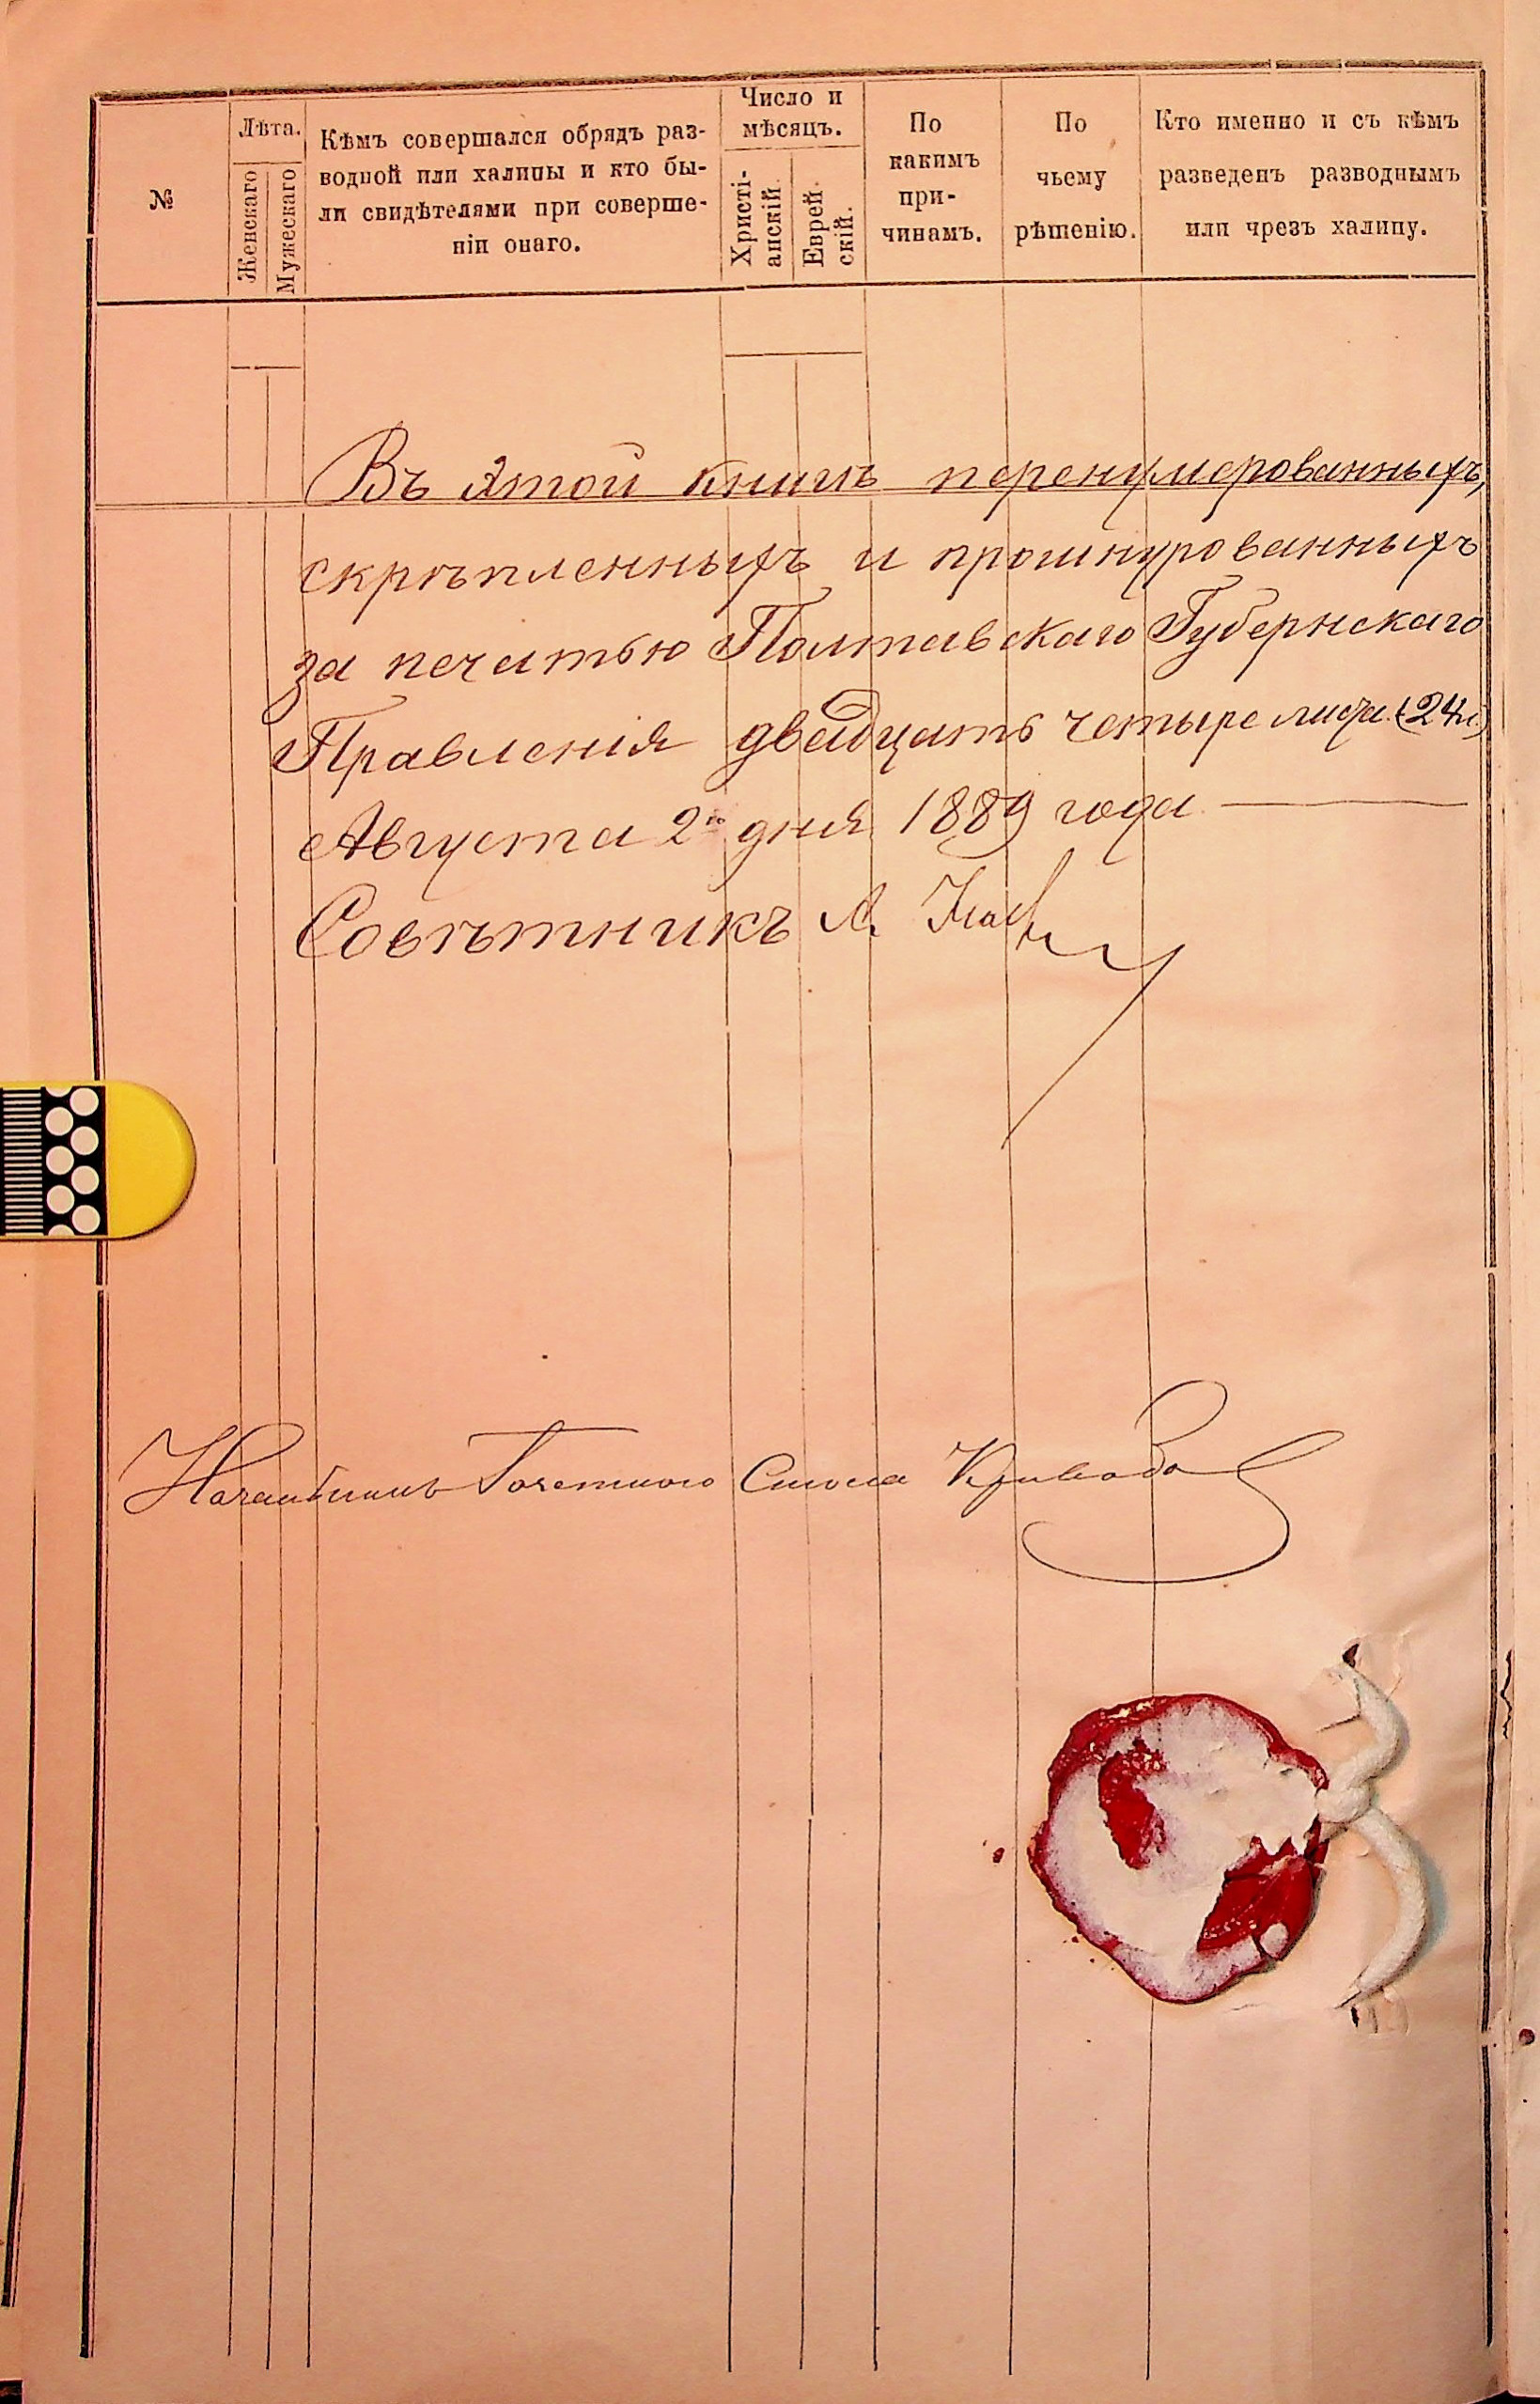 №
Лѣта.
Женскаго
Мужескаго
Кѣмъ совершался обрядъ раз-
водной или халицы и кто бы-
ли свидѣтелями при соверше-
ніи онаго.
Число и
мѣсяцъ.
Христі-
анскій.
Еврей-
скій.
По
какимъ
при-
чинамъ.
По
чьему
рѣшенію.
Кто именно и съ кѣмъ
разведенъ разводнымъ
или чрезъ халицу.
Въ этой книгѣ перенумерованныхъ,
скрѣпленныхъ и прошнурованныхъ
за печатью Полтавскаго Губернскаго
Правленія двадцать четыре листа (24 л)
Августа 2го дня 1889 года
Совѣтникъ А.
Стола